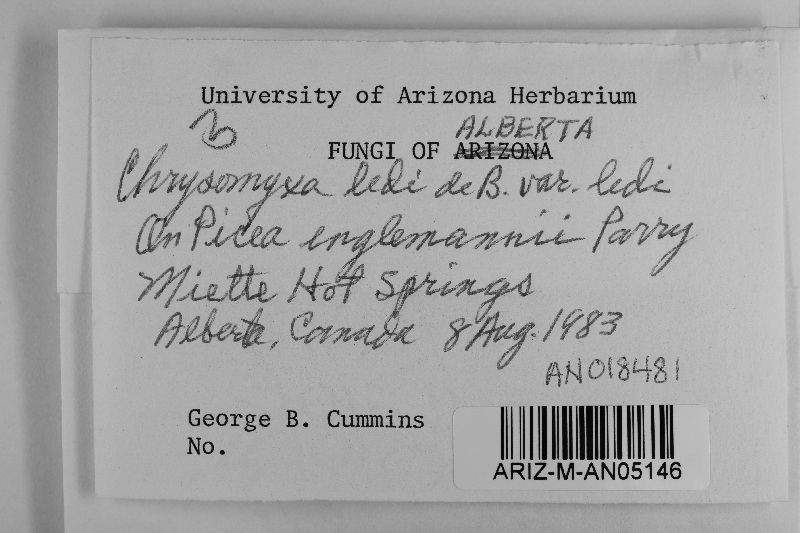 University of Arizona Herbarium
ALBERTA
FUNGI OF ARIZONA
Chrysomyxa ledi de B. var. ledi
On Picea englemannii Parry
Miette Hot Springs
Alberta, Canada 8 Aug. 1983
AN018481
George B. Cummins
No.
ARIZ-M-AN05146